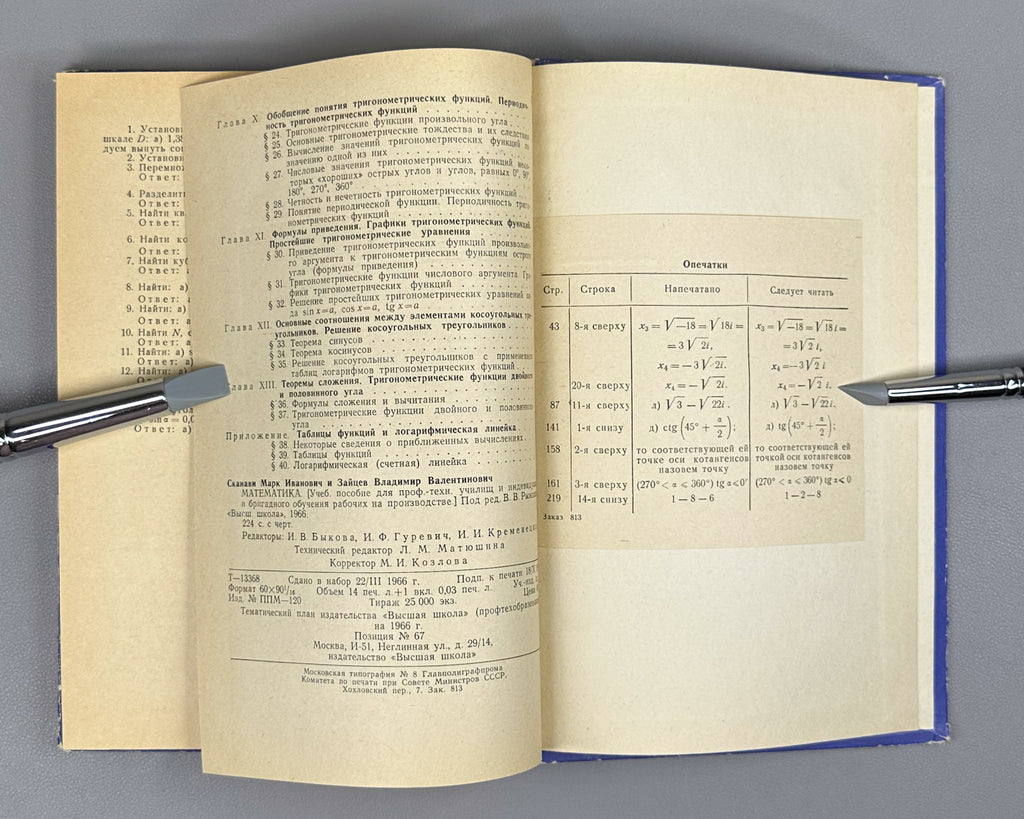 1. Установи
шкале D: а) 1,35
дуем вынуть
2. Установи
3. Перемно
Ответ:
4. Разделить
Ответ:
5. Найти кв
Ответ:
6. Найти ко
Ответ:
7. Найти куб
Ответ:
8. Найти: а)
Ответ: а
9. Найти: а)
Ответ: а
10. Найти N, е
Ответ: а)
11. Найти: а) s
Ответ: а)
12.
Ответ: а)
Глава X. Обобщение понятия тригонометрических функций. Периодич-
ность тригонометрических функций
§ 24. Тригонометрические функции произвольного угла
§ 25. Основные тригонометрические тождества и их следствия
§ 26. Вычисление значений тригонометрических функций по
значению одной из них
§ 27. Числовые значения тригонометрических функций неко-
торых «хороших» острых углов и углов, равных 0°, 90°
180°, 270°, 360°
§ 28. Четность и нечетность тригонометрических функций
§ 29. Понятие периодической функции. Периодичность триго-
нометрических функций
Глава XI. Формулы приведения. Графики тригонометрических функций.
Простейшие тригонометрические уравнения
§ 30. Приведение тригонометрических функций произвольно-
го аргумента к тригонометрическим функциям острого
угла (формулы приведения)
§ 31. Тригонометрические функции числового аргумента Гра-
фики тригонометрических функций
§ 32. Решение простейших тригонометрических уравнений ви-
да sin x=a, cos x=a, tg x=a
Глава XII. Основные соотношения между элементами косоугольных тре-
угольников. Решение косоугольных треугольников
§ 33. Теорема синусов
§ 34. Теорема косинусов
§ 35. Решение косоугольных треугольников с применением
таблиц логарифмов тригонометрических функций
Глава XIII. Теоремы сложения. Тригонометрические функции двойного
и половинного угла
§ 36. Формулы сложения и вычитания
§ 37. Тригонометрические функции двойного и половинного
угла
Приложение. Таблицы функций и логарифмическая линейка
§ 38. Некоторые сведения о приближенных вычислениях
§ 39. Таблицы функций
§ 40. Логарифмическая (счетная) линейка
Сканави Марк Иванович и Зайцев Владимир Валентинович
МАТЕМАТИКА. [Учеб. пособие для проф.-техн. училищ и индивид.
и бригадного обучения рабочих на производстве.] Под ред. В. В. Рыжкова
«Высш школа», 1966.
224 с. с черт.
Редакторы: И. В. Быкова, И. Ф. Гуревич, И. И. Кременецкая
Технический редактор Л. М. Матюшина
Корректор М. И. Козлова
Т—13368 Сдано в набор 22/III 1966 г. Подп. к печати 18/
Формат 60×90¹/₁₆ Объем 14 печ. л.+1 вкл. 0,03 печ. л. Уч.-изд.
Изд. № ППМ—120 Тираж 25 000 экз. Цена
Тематический план издательства «Высшая школа» (профтехобразование)
на 1966 г.
Позиция № 67
Москва, И-51, Неглинная ул., д. 29/14,
издательство «Высшая школа»
Московская типография № 8 Главполиграфпрома
Комитета по печати при Совете Министров СССР,
Хохловский пер., 7. Зак. 813
Опечатки
Стр. Строка Напечатано Следует читать
43 8-я сверху x₃ = √−18 = √18i = x₃ = √−18 = √18 i =
= 3√2i, = 3√2 i,
x₄ = −3√2i. x₄ = −3√2 i
20-я сверху x₄ = −√2i. x₄ = −√2 i.
87 11-я сверху л) √3 − √22i. л) √3 − √22 i.
141 1-я снизу д) ctg (45° + α/2); д) tg (45° + α/2);
158 2-я сверху то соответствующей ей то соответствующей ей
точке оси котангенсов точкой оси котангенсов
назовем точку назовем точку
161 3-я сверху (270° < α ≤ 360°) tg α<0 (270° < α ≤ 360°) tg α ≤ 0
219 14-я снизу 1 − 8 − 6 1 − 2 − 8
Заказ 813